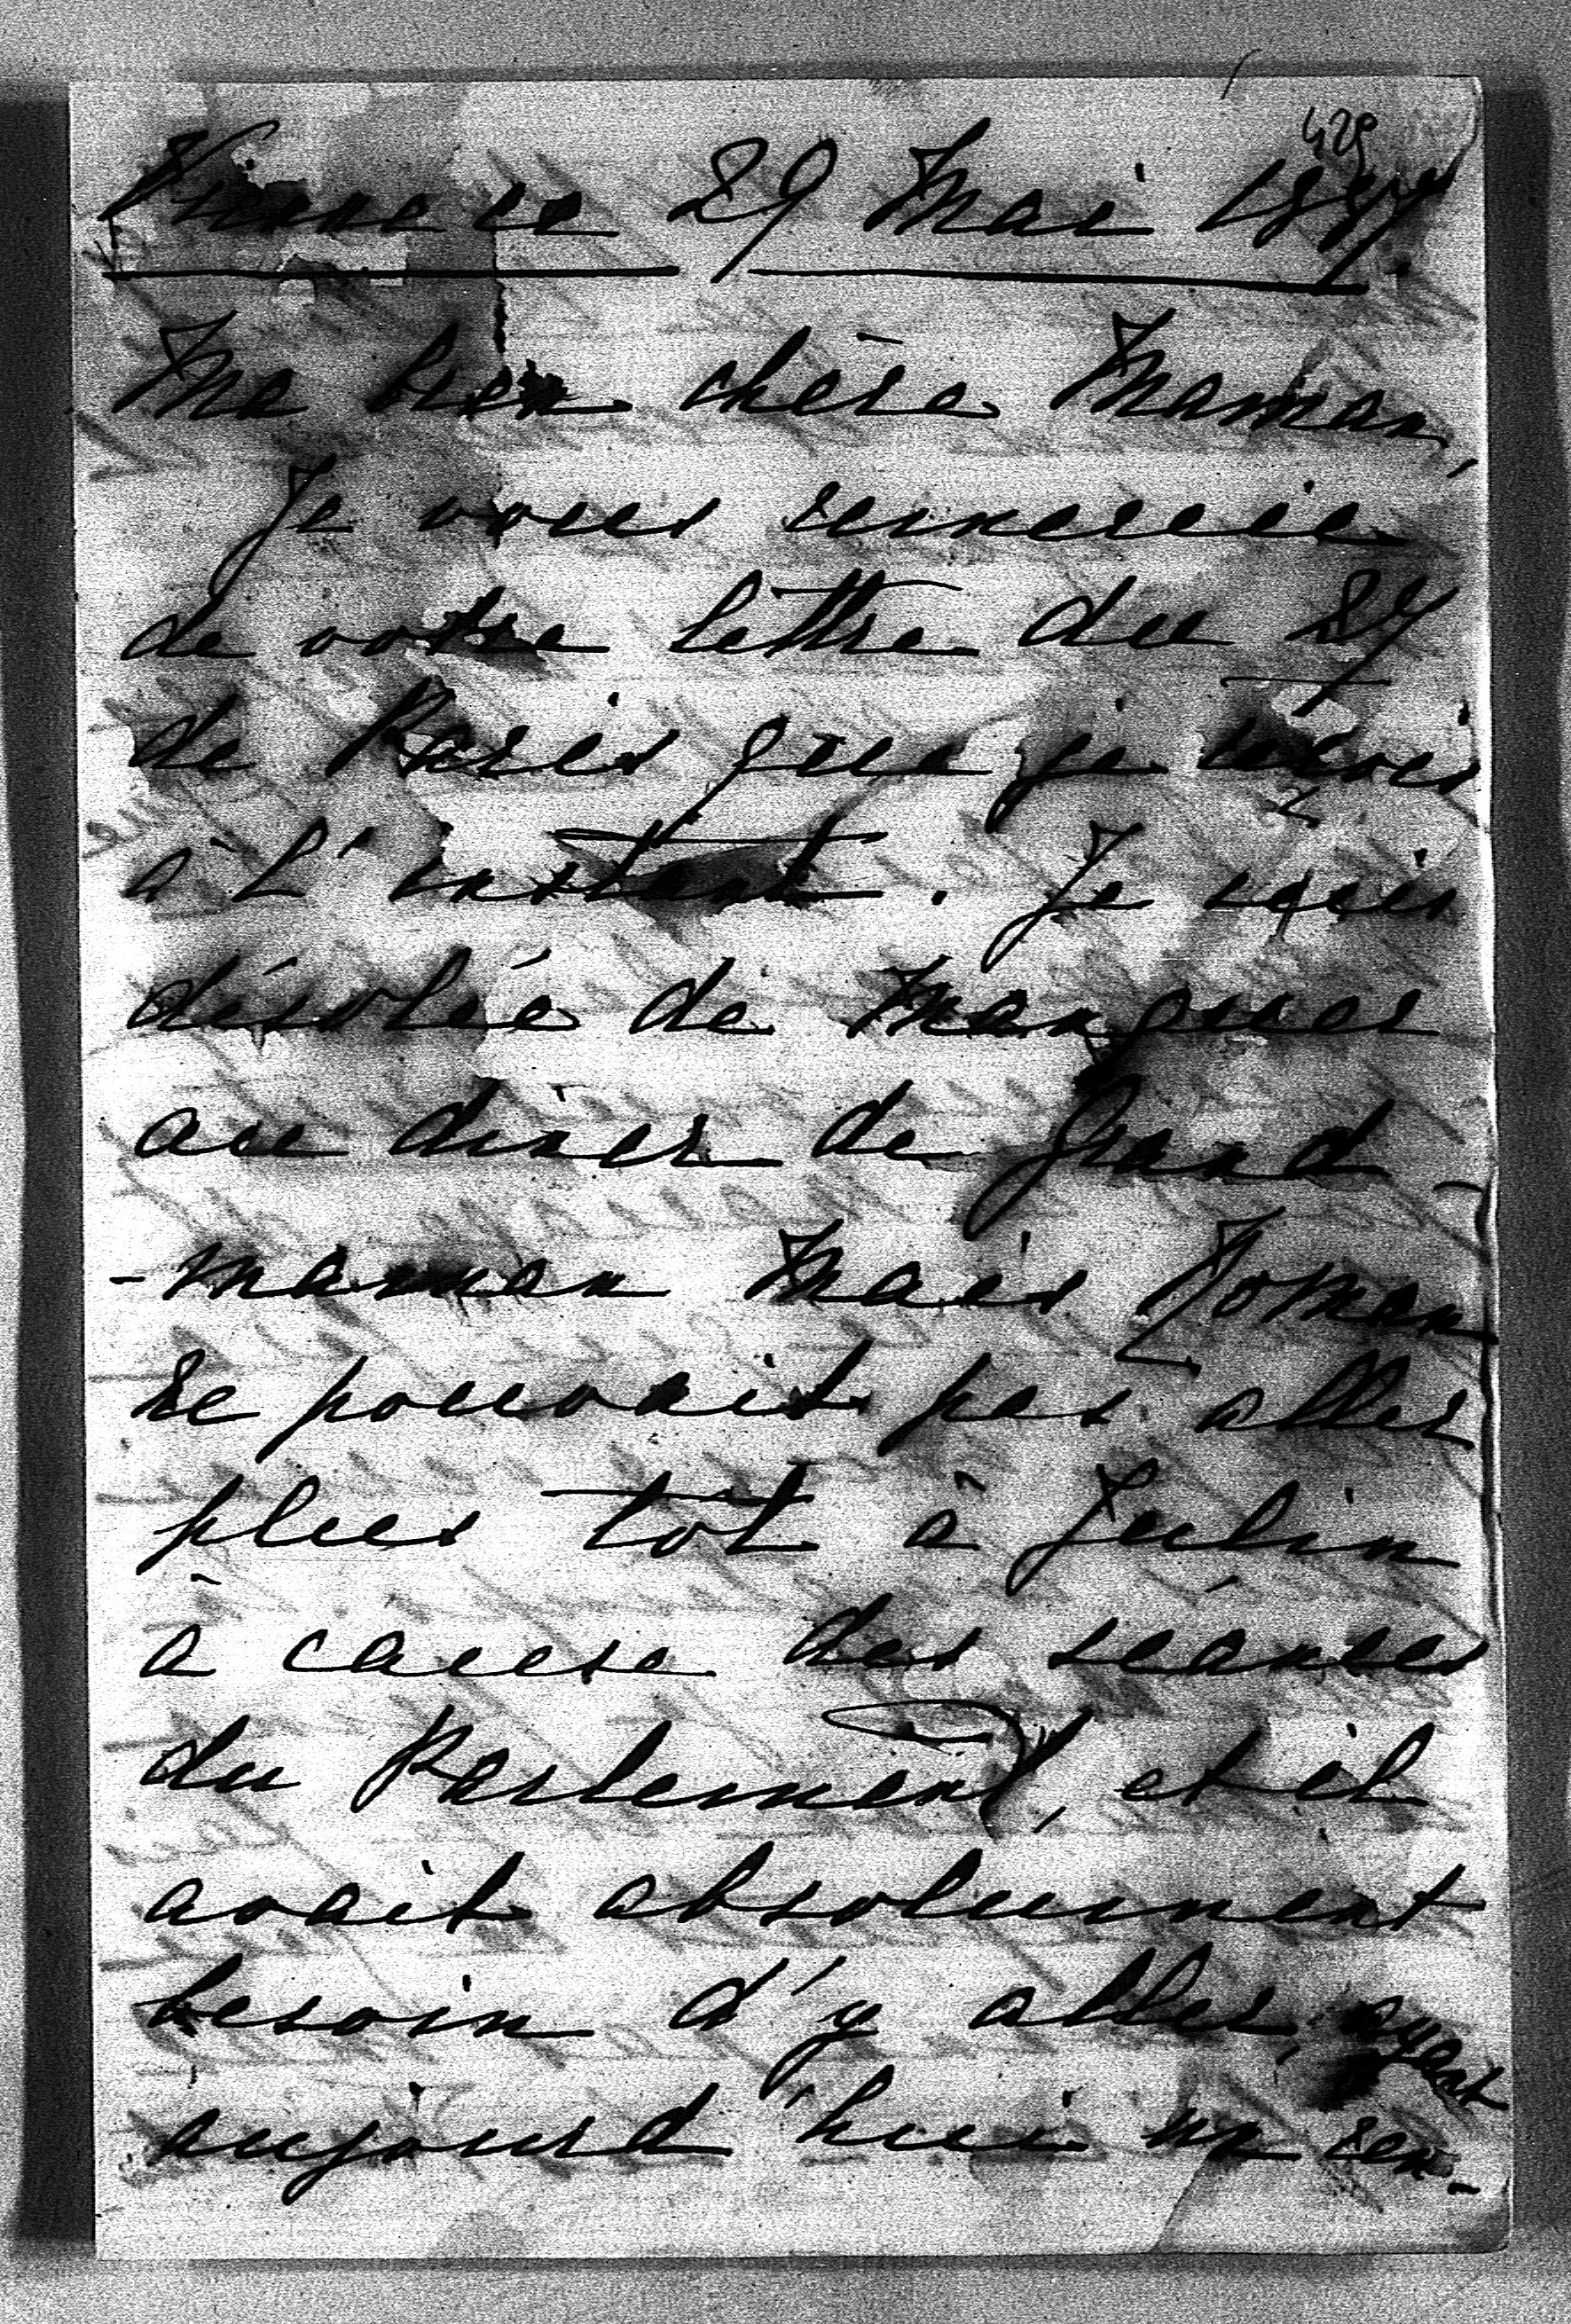 429
Vienne ce 29 Mai 1897.
Ma bien chère Maman,
Je vous remercie
de votre lettre du 27
de Paris que je reçois
à l'instant. Je suis
désolée de manquer
au diner de Grand-
-maman mais Roman
ne pouvait pas aller
plus tôt à Julin
à cause des séances
du Parlement, et il
avait absolument
besoin d'y aller, ayant
aujourd'hui un ren-